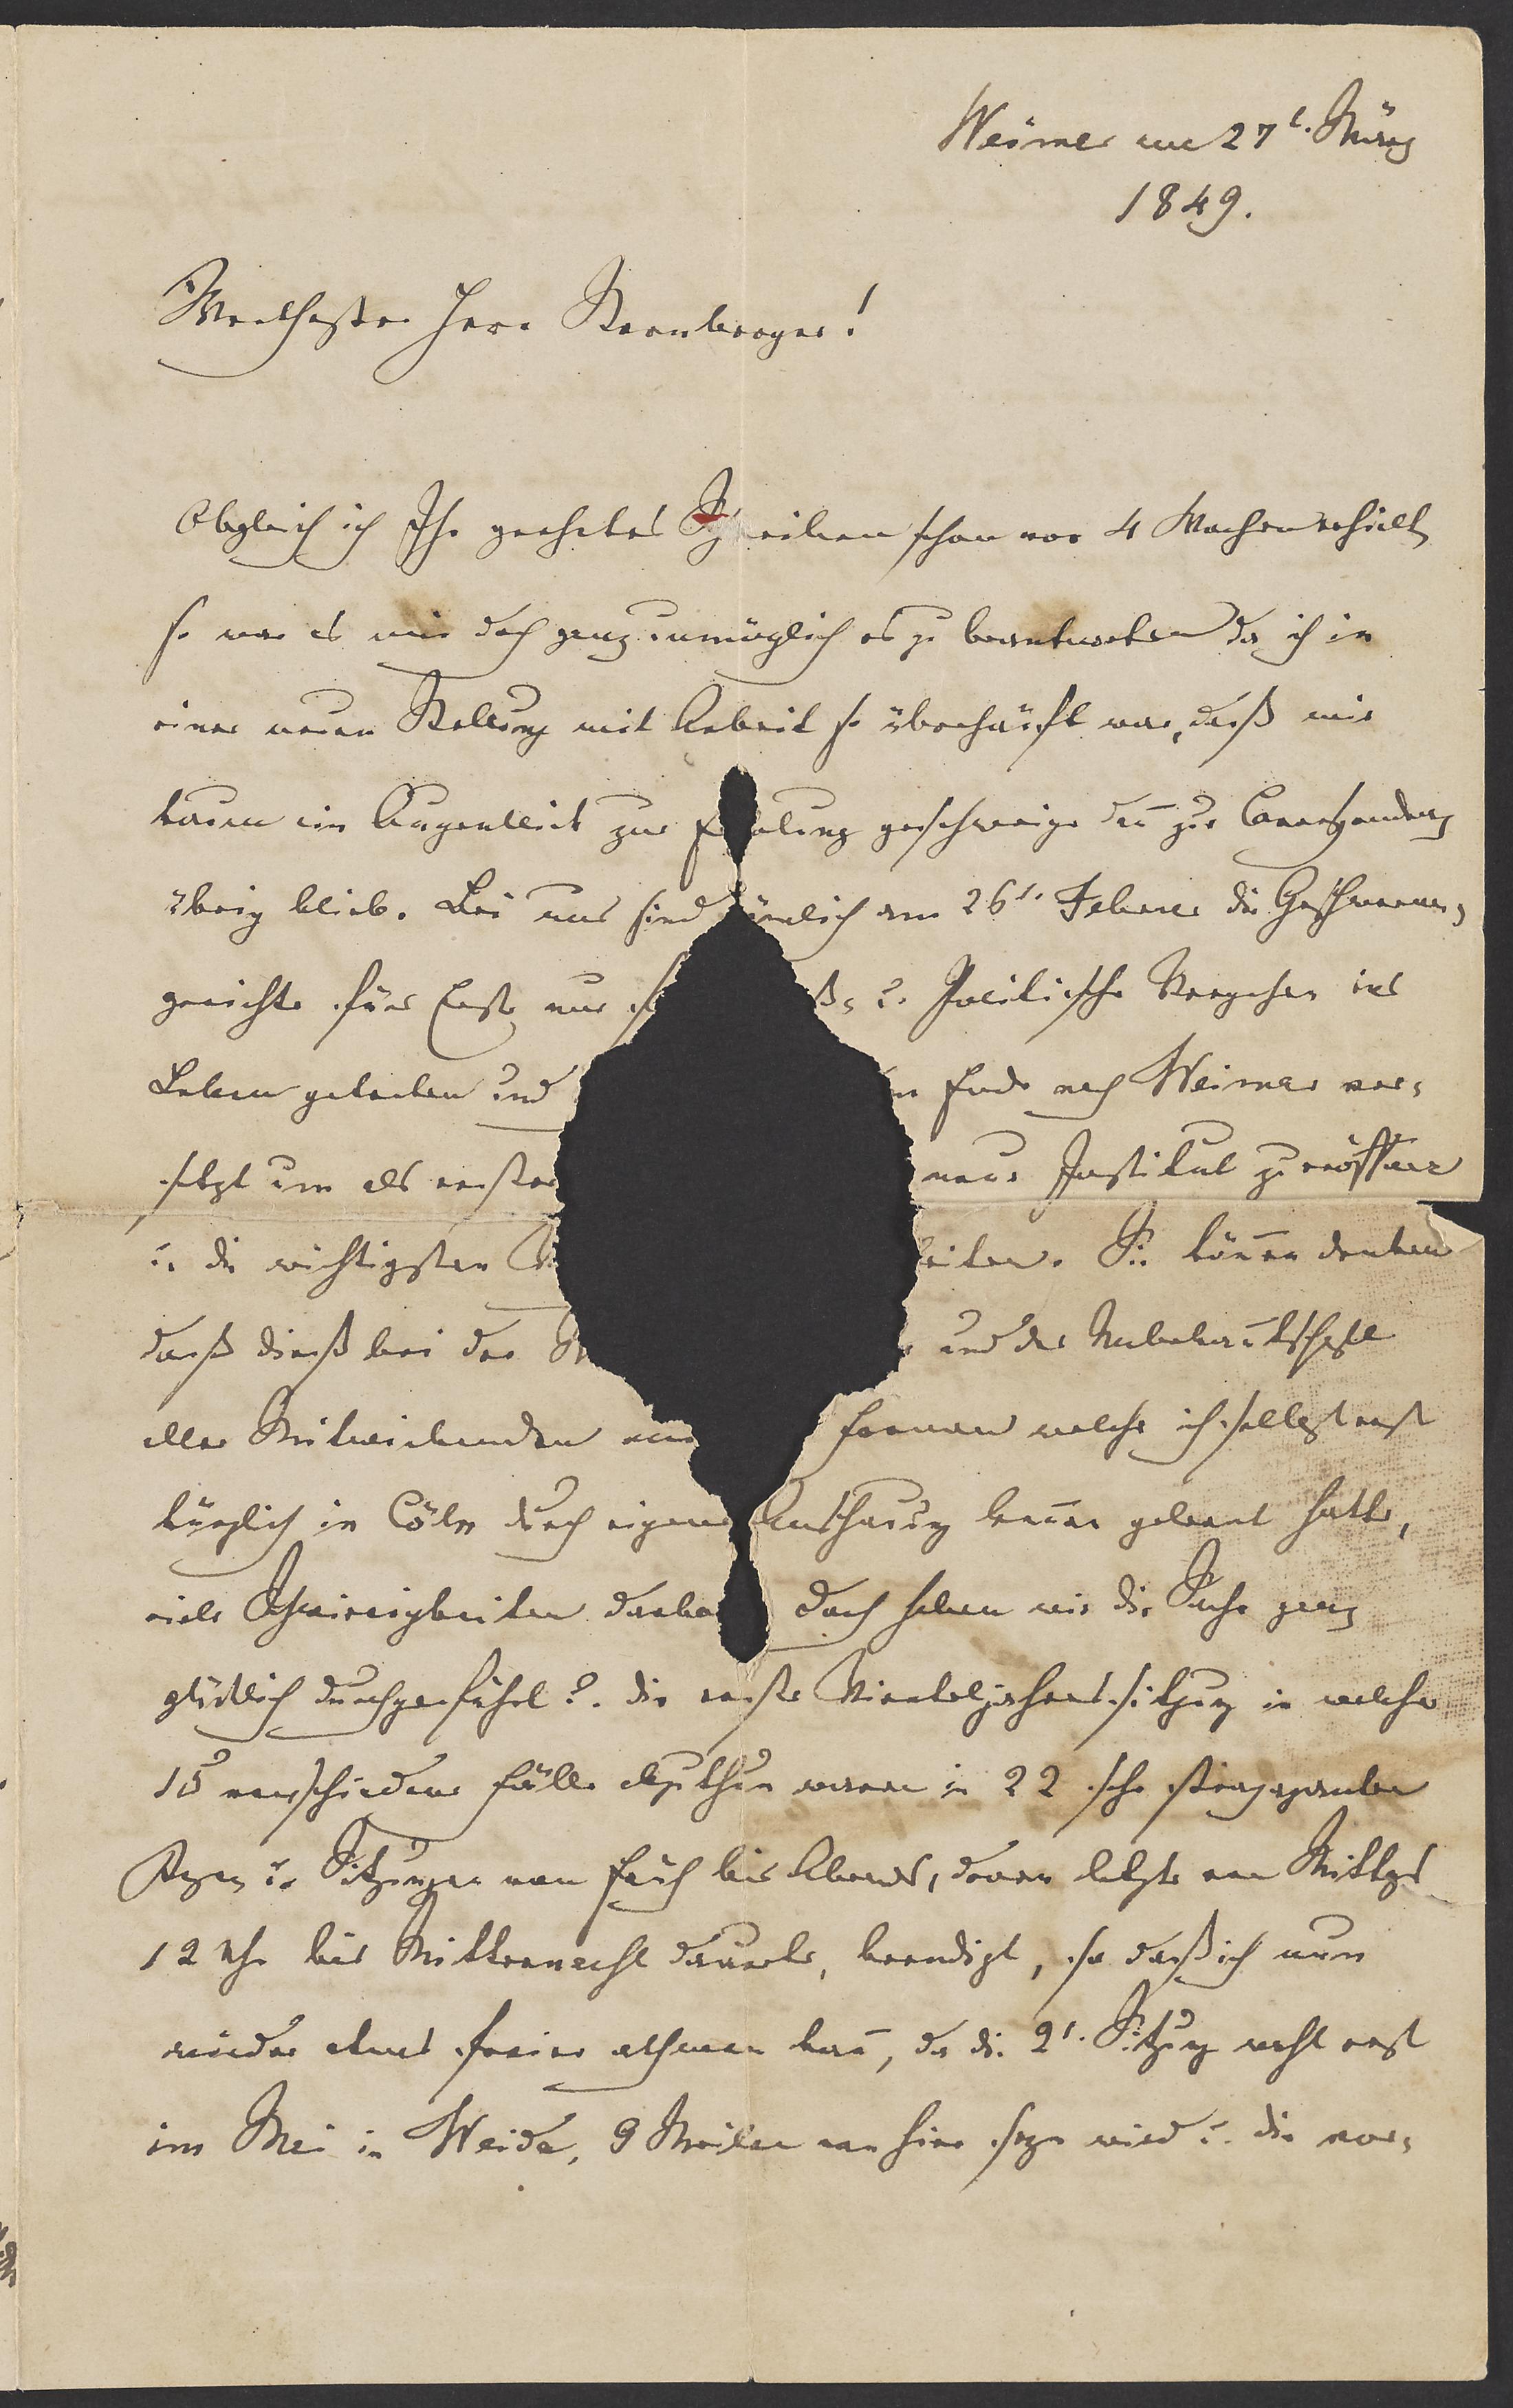 Weimar am 27t. März
1849.
Werthester Herr Kernberger!
Obgleich ich Ihr geehrtes Schreiben schon vor 4 Wochen erhielt,
so war es mir doch ganz unmöglich es zu beantworten da ich in
einer neuen Stellung mit Arbeit so überhäuft war, daß mir
kaum ein Augenblick zur E olung geschweige deñ zur Correspondenz
übrig blieb. Bei uns sind ämlich am 26t. Februar die Geschwornen-
gerichte fürs Erste nur f ß- u. Politische Vergehen ins
Leben getreten und n Ende nach Weimar ver-
setzt um als erster neue Institut zu eröffnen
u. die wichtigsten leiten. Sie köñen denken
daß dieß bei der N und der Unbekañtschaft
aller Mitwirkenden Formen welche ich selbst erst
kürzlich in Cöln durch eigene Anschauung keñen gelernt hatte,
viele Schwierigkeiten darbo doch haben wir die Sache ganz
glücklich durchgeführt u. die erste Vierteljahressitzung in welcher
15 verschiedene Fälle abzuthun waren in 22 sehr
u. Sitzungen von früh bis Abends, deren letzte von Mittags
12 Uhr bis Mitternacht dauerte, beendigt, so daß ich nun
wieder etwas freier athmen kañ, da die 2t. Sitzung erst
im Mai in Weida, 9 Meilen von hier seyn wird u. die vor-